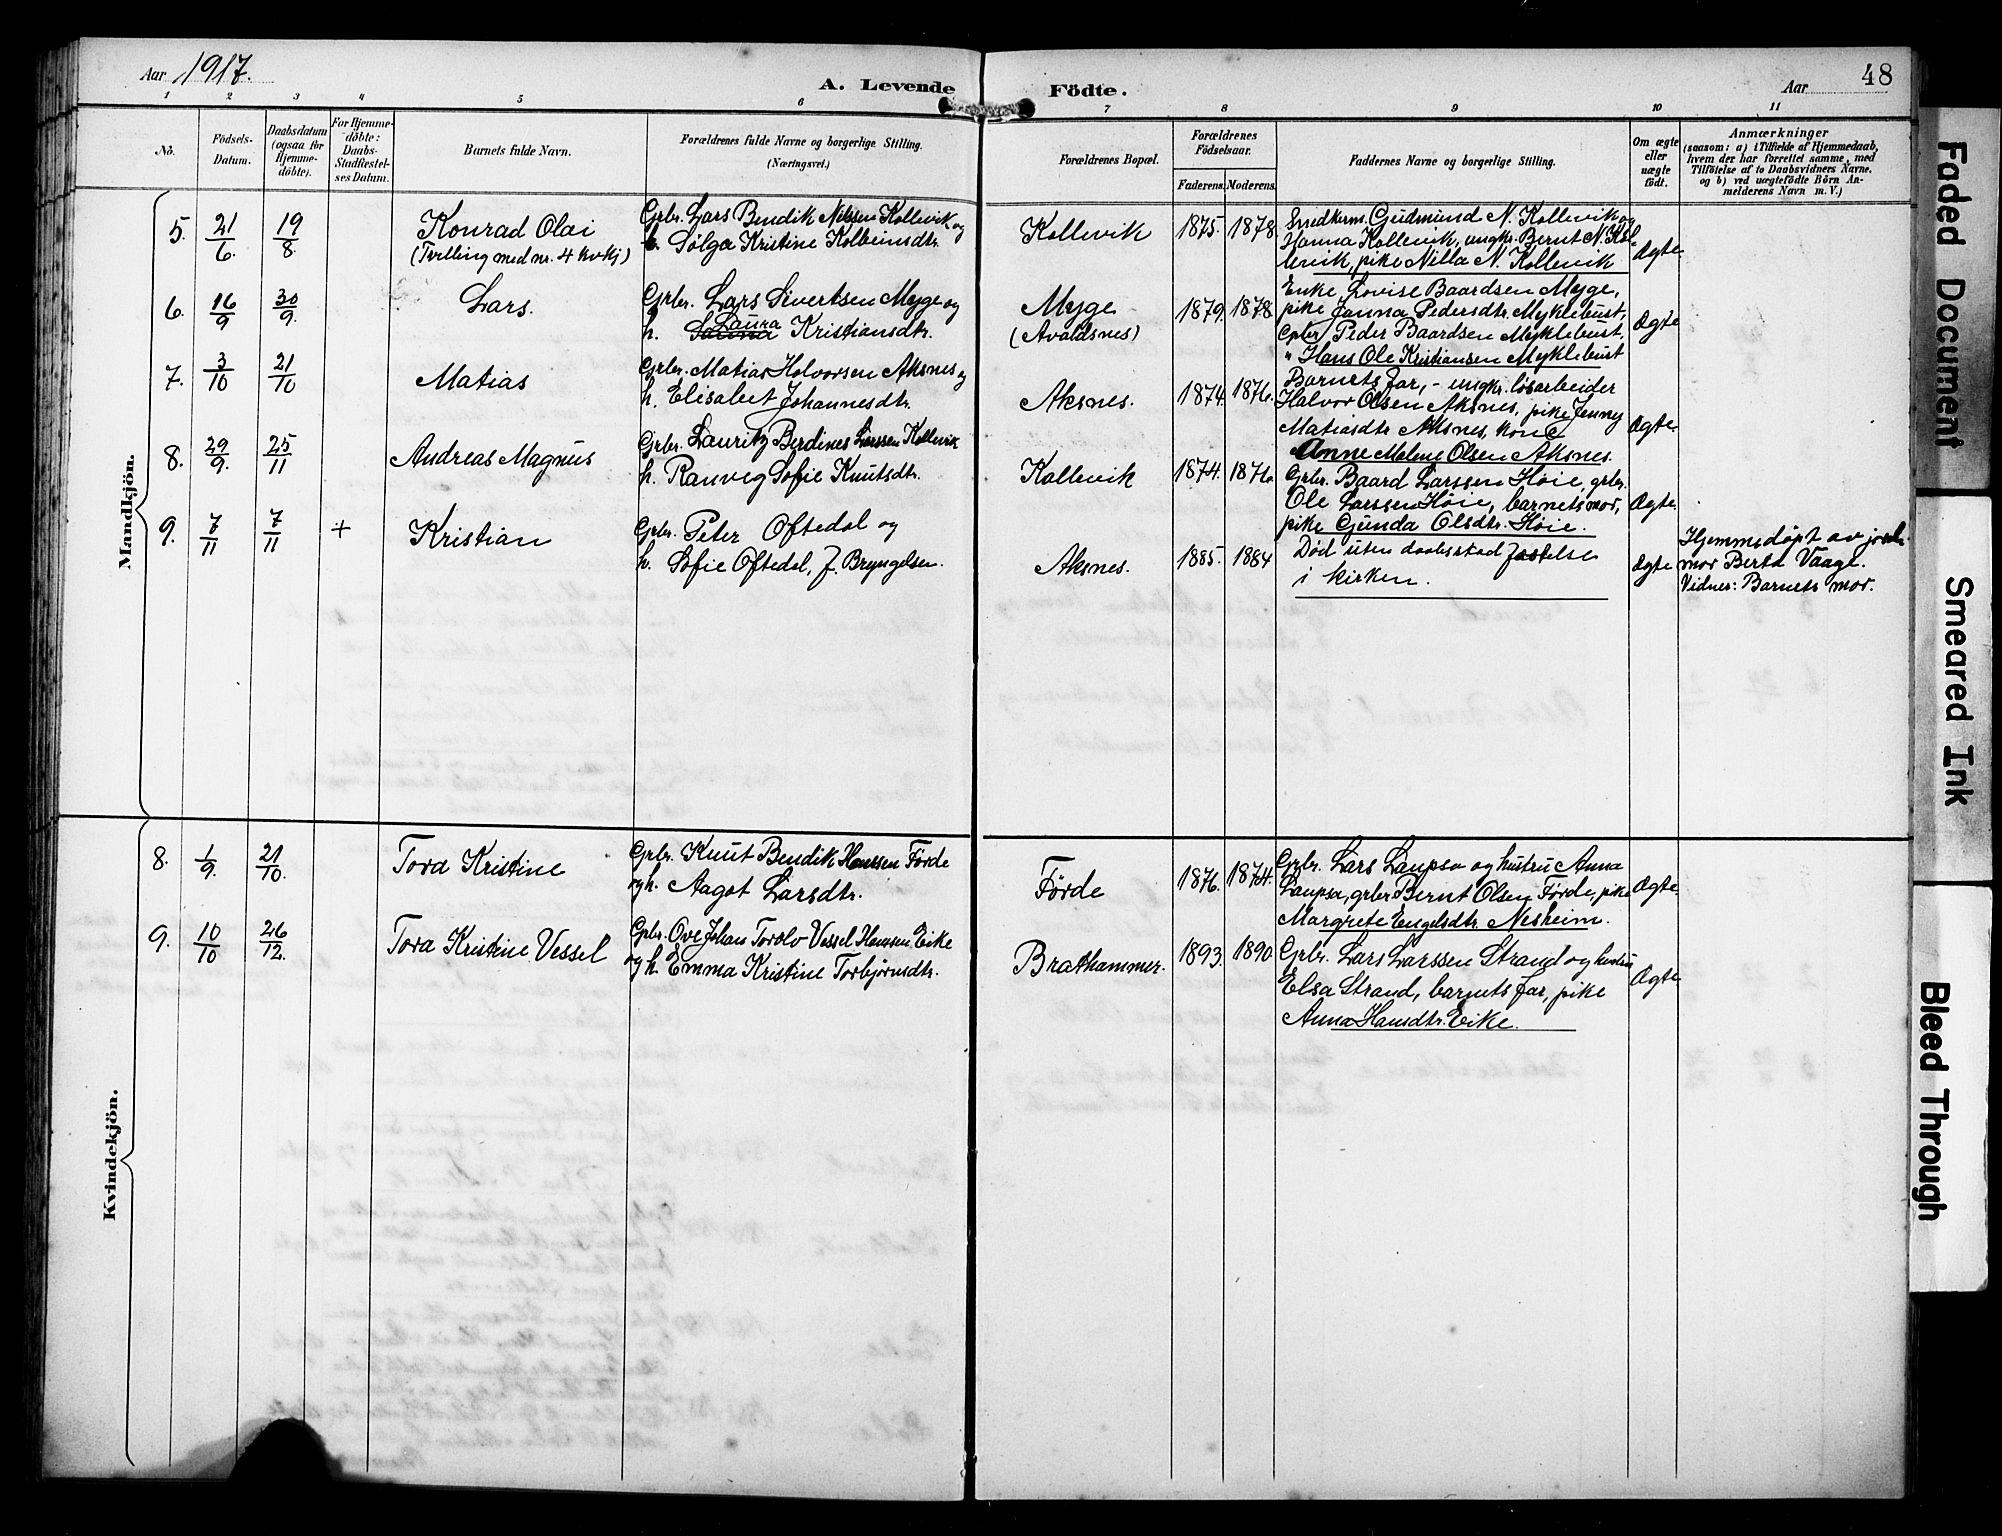 Aar 1917.
A. Levende Födte.
Aar
48
1 2 3 4 5 6 7 8 9 10 11
No.
Födsels-Datum.
Daabsdatum (ogsaa for Hjemme-döbte).
For Hjemme-döbte: Daabs-Stadfæstel-ses Datum.
Barnets fulde Navn.
Forældrenes fulde Navne og borgerlige Stilling.
(Næringsvei.)
Forældrenes Bopæl.
Forældrenes Födselsaar.
Faderens. Moderens.
Faddernes Navne og borgerlige Stilling.
Om ægte eller uægte födt.
Anmærkninger
(saasom: a) i Tilfælde af Hjemmedaab,
hvem der har forrettet samme, med
Tilföielse af to Daabsvidners Navne.
og b) ved uægtefödte Börn An-
melderens Navn m. V.)
Mandkjön.
5. 21/6 19/8 Konrad Olai
(Tvilling med nr. 4 kvkj)
Grbr. Lars Bendik Nilssen Kollevik og
h. Sølga Kristine Kolbeinsdtr.
Kollevik 1875. 1878.
Snedkerm. Gudmund N. Kollevik og
Hanna Kollevik, ungkr. Bernt N. Kol-
levik, pike Nilla N. Kollevik
Ægte
6. 16/9 30/9 Lars.
Grbr. Lars Sivertsen Myge og
h. Laura Kristiansdtr.
Myge
(Avaldsnes)
1879. 1878
Enke Lovise Baardsen Myge,
pike Janna Pedersdtr. Myklebust,
Grbr Peder Baardsen Myklebust,
" Hans Ole Kristiansen Myklebust
Ægte
7. 3/10 21/10 Matias
Grbr. Matias Halvorsen Aksnes og
h. Elisabet Johannesdtr.
Aksnes. 1874. 1876.
Barnets far, - ungkr. løsarbeider
Halvor Olsen Aksnes, pike Jenny
Matiasdtr Aksnes, kone
Anne Malene Olsen Aksnes.
Ægte.
8. 29/9. 25/11 Andreas Magnus
Grbr. Lauritz Berdines Larssen Kollevik
h. Ranveg Sofie Knutsdtr.
Kollevik 1874. 1876
Grbr. Baard Larssen Høie, grbr.
Ole Larssen Høie, barnets mor,
pike Gunda Olsdtr. Høie.
Ægte.
9. 7/11 7/11 + Kristian
Grbr. Peter Oftedal og
h. Sofie Oftedal, f. Bryngelsen.
Aksnes. 1885. 1884
Død uten daabsstadfæstelse
i kirken.
Ægte
Hjemmedøpt av jord-
mor Berta Vaage.
Vidner: Barnets mor.
Kvindekjön.
8. 1/9. 21/10. Tora Kristine
Grbr. Knut Bendik Hanssen Førde
og h. Aagot Larsdtr.
Førde 1876. 1874.
Grbr. Lars Laupsa og hustru Anna
Laupsa, grbr Bernt Olsen Førde, pike
Margrete Engelsdtr. Nesheim.
Ægte
9. 10/10 26/12. Tora Kristine Vessel
Grbr. Ove Johan Torolv Vessel Hanssen Eike
og h. Emma Kristine Torbjørnsdtr.
Brathammer. 1893. 1890.
Grbr. Lars Larssen Strand og hustru
Elsa Strand, barnets far, pike
Anna Hansdtr. Eike.
Ægte
Faded Document
Smeared Ink
Bleed Through